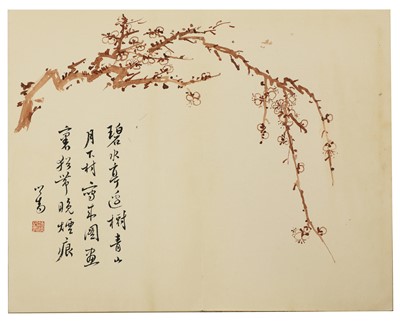 碧水亭邊樹青山
月下村寫來圖畫
裏猶帶晚煙痕
心畬